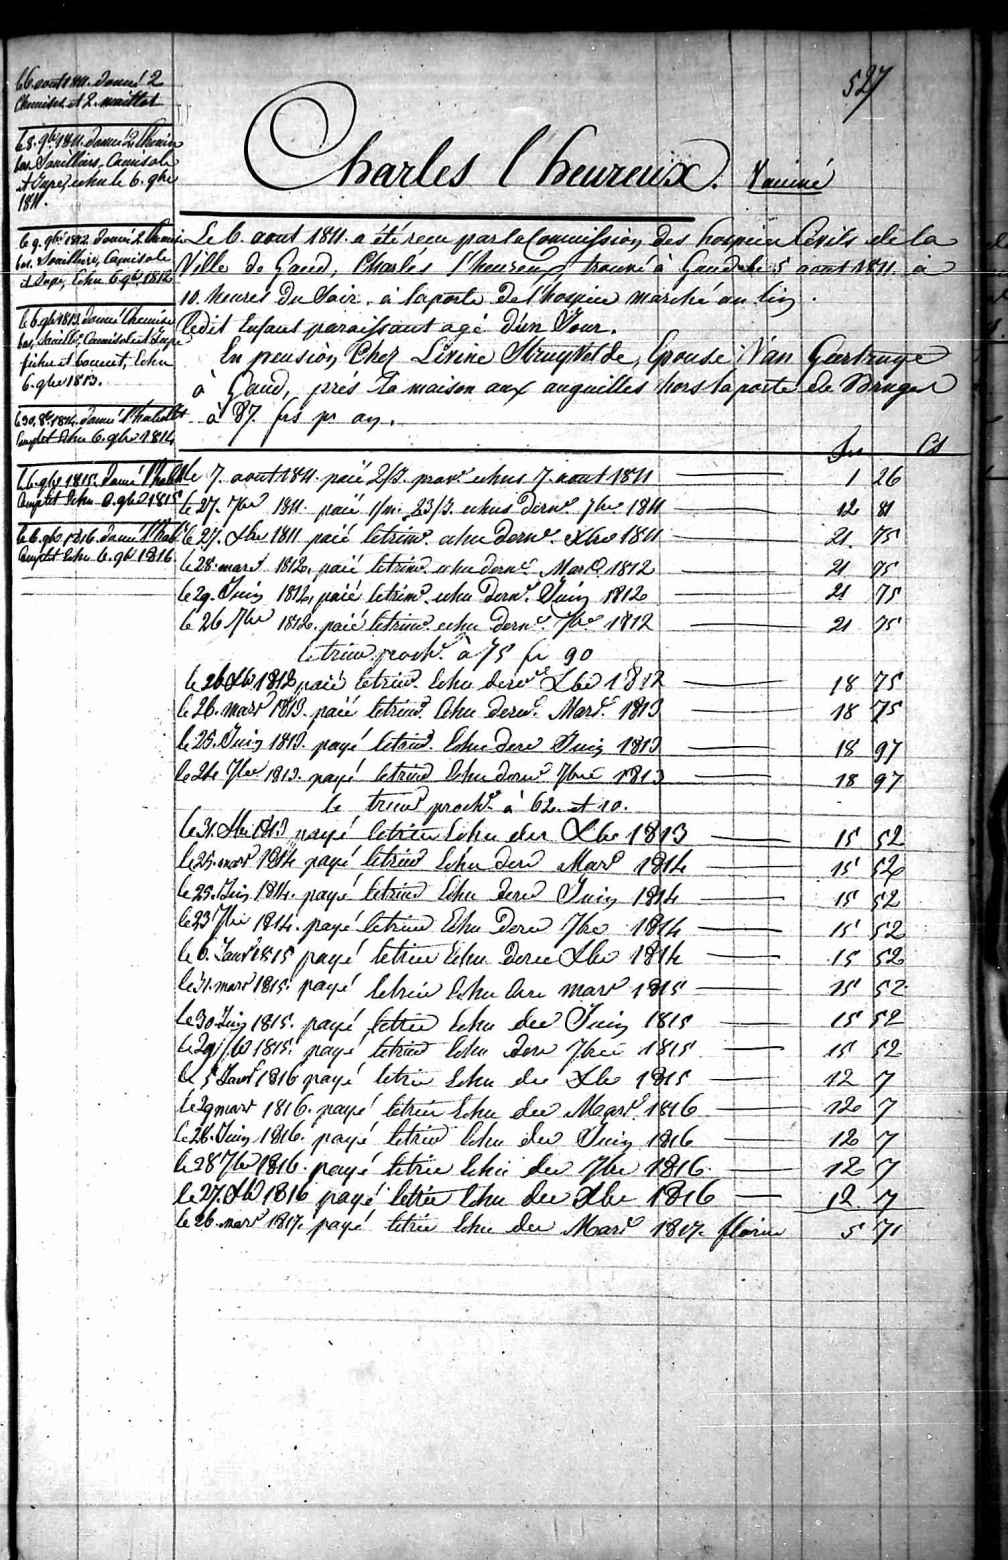 527
Charles l'heureux. Vacciné
Le 6. aout 1811. a été recu par la Commission des hospices Civils de la
Ville de Gand, Charles l'heureux trouvé à Gand le 5 aout 1811 à
10. heures du Soir. à la porte de l'hospice marché au lin.
ledit Enfant paraissant agé d'un Jour.
En pension Chez Livine Struyvelde, Epouse Van
à Gand, prés la maison aux anguilles hors la porte de Bruges
à 87. frs pr an.
le 6. aout 1811. donné 2
Chemises et 2. maillot
le 8. 9bre 1811. donné 2 Chemise
bas Souilliers, Camisole
et Jupe, echu le 6. 9bre
1811.
le 9. 9bre 1812. donné 2. Chemise
bas, Souilliere, Camisole
et Jupe, Echu 6 9bre 1812
le 6. 9bre 1813. donné Chemise
bas, Souillie, Camisole et Jupe
fichu et bonnet, Echu
6. 9bre 1813.
le 30. 8bre 1814. donné l'habill
Complet Echu 6. 9bre 1814
le 6. 9bre 1815. donné l'habill
Complet Echu 6. 9bre 1815
le 6. 9bre 1816. donné l'habil
Complet Echu 6. 9bre 1816.
frs Cs
le 7. aout 1811. paié 2/3. prov. echus 7. aout 1811 1 26
le 27. 7bre 1811. paié 1/m. 23/3. echus dernr. 7bre 1811 12 81
le 27. Xbre 1811 paié letrimr. echu dernr. Xbre 1811 21 75
le 28. mars 1812, paié letrimr. echu dernr. Mars 1812 21 75
le 29. Juin 1812, paié letrimr. echu dernr. Juin 1812 21 75
le 26 7bre 1812. paié letrimr. echu dernr. 7bre 1812 21 75
letrim. prochn. à 75 fr 90
le 26 Xbre 1812 paié letrimr. Echu dernr Xbre 1812 18 75
le 26. mars 1813. paié letrimr. Echu dernr. Mars. 1813 18 75
le 25. Juin 1813. payé letrimr. Echu derr Juin 1813 18 97
le 24 7bre 1813. payé letrimr Echu dernr 7bre 1813 18 97
le trimr prochn à 62. et 10.
le 31. Xbre 1813 payé letrim Echu der Xbre 1813 15 52
le 25. mars 1814 payé letrimr Echu derr Mars 1814 15 52
le 23. Juin 1814. payé letrimr Echu derr Juin 1814 15 52
le 23 7bre 1814. payé letrim Echu derr 7bre 1814 15 52
le 6. Janvr 1815 payé letrim Echu derr Xbre 1814 15 52
le 31. mars 1815. payé letrim Echu derr mars 1815 15 52
le 30. Juin 1815. payé letrim Echu der Juin 1815 15 52
le 29 7bre 1815. payé letrimr Echu derr 7bre 1815 15 52
le 5 Janvr 1816 payé letrim Echu der Xbre 1815 12 7
le 29 mars 1816. payé letrim Echu der Mars. 1816 12 7
le 28. Juin 1816. payé letrimr Echu der Juin 1816 12 7
le 28 7bre 1816. payé letrim Echu der 7bre 1816. 12 7
le 27. Xbre 1816 payé letrim Echu der Xbre 1816 12. 7
le 26. mars 1817. payé letrim Echu der Mars 1817. florins 5 71